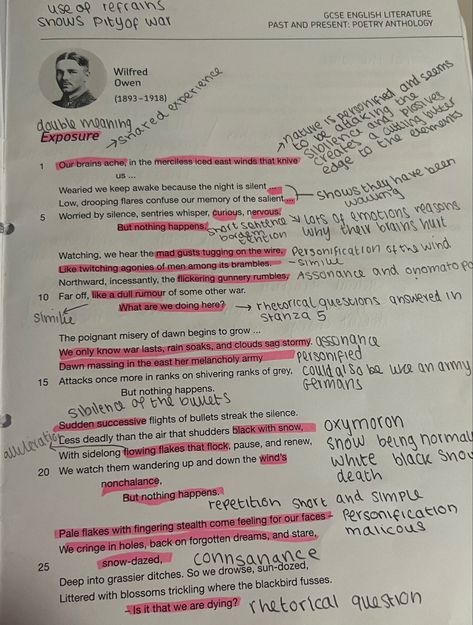 use of refrains
shows pity of war
GCSE ENGLISH LITERATURE
PAST AND PRESENT: POETRY ANTHOLOGY
Wilfred
Owen
(1893–1918)
double meaning
Exposure
→ shared experience
nature is personified and seems
to be attacking
Sibilence and the
creates a plosives
cutting bitter
edge to the elements
1 Our brains ache, in the merciless iced east winds that knive
us ...
Wearied we keep awake because the night is silent ...
Low, drooping flares confuse our memory of the salient ...
shows they have been
waiting
5 Worried by silence, sentries whisper, curious, nervous,
But nothing happens.
short sentence
boredom
lots of emotions reasons
why their brains hurt
Watching, we hear the mad gusts tugging on the wire,
Personification of the wind
Like twitching agonies of men among its brambles.
- simile
Northward, incessantly, the flickering gunnery rumbles,
Assonance and onomatopo
10 Far off, like a dull rumour of some other war.
What are we doing here?
Similie
→ rhetorical questions answered in
stanza 5
The poignant misery of dawn begins to grow ...
We only know war lasts, rain soaks, and clouds sag stormy.
assonance
Dawn massing in the east her melancholy army
personified
15 Attacks once more in ranks on shivering ranks of grey,
could also be like an army
Germans
But nothing happens.
sibilence of the bullets
Sudden successive flights of bullets streak the silence.
alliteration
Less deadly than the air that shudders black with snow,
oxymoron
With sidelong flowing flakes that flock, pause, and renew,
snow being normally
20 We watch them wandering up and down the wind's
white black snow
death
nonchalance,
But nothing happens.
repetition short and simple
Pale flakes with fingering stealth come feeling for our faces –
Personification
malicous
We cringe in holes, back on forgotten dreams, and stare,
snow-dazed,
connsanance
25
Deep into grassier ditches. So we drowse, sun-dozed,
Littered with blossoms trickling where the blackbird fusses.
– Is it that we are dying?
rhetorical question